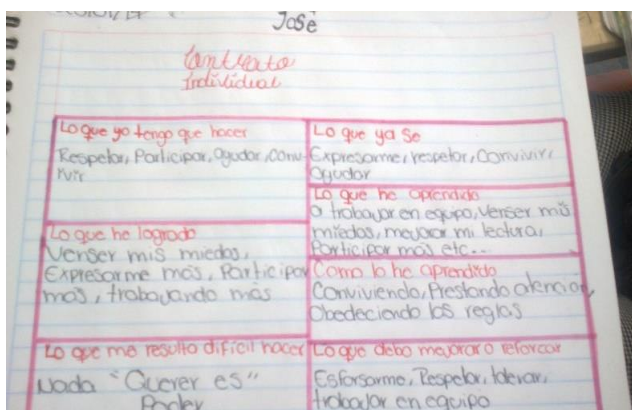 José
Contrato
Individual
Lo que yo tengo que hacer
Respetar, Participar, ayudar, conv-
ivir
Lo que he logrado
Venser mis miedos,
Expresarme más, Participar
más, trabajando más
Lo que me resulta difícil hacer
Nada "Querer es"
Poder
Lo que ya se
Expresarme, respetar, convivir,
ayudar
Lo que he aprendido
a trabajar en equipo, Venser mis
miedos, mejorar mi lectura,
Participar más etc..
Como lo he aprendido
Conviviendo, Prestando atención,
Obedeciendo las reglas
Lo que debo mejorar o reforcar
Esforsarme, Respetar, tolerar,
trabajar en equipo